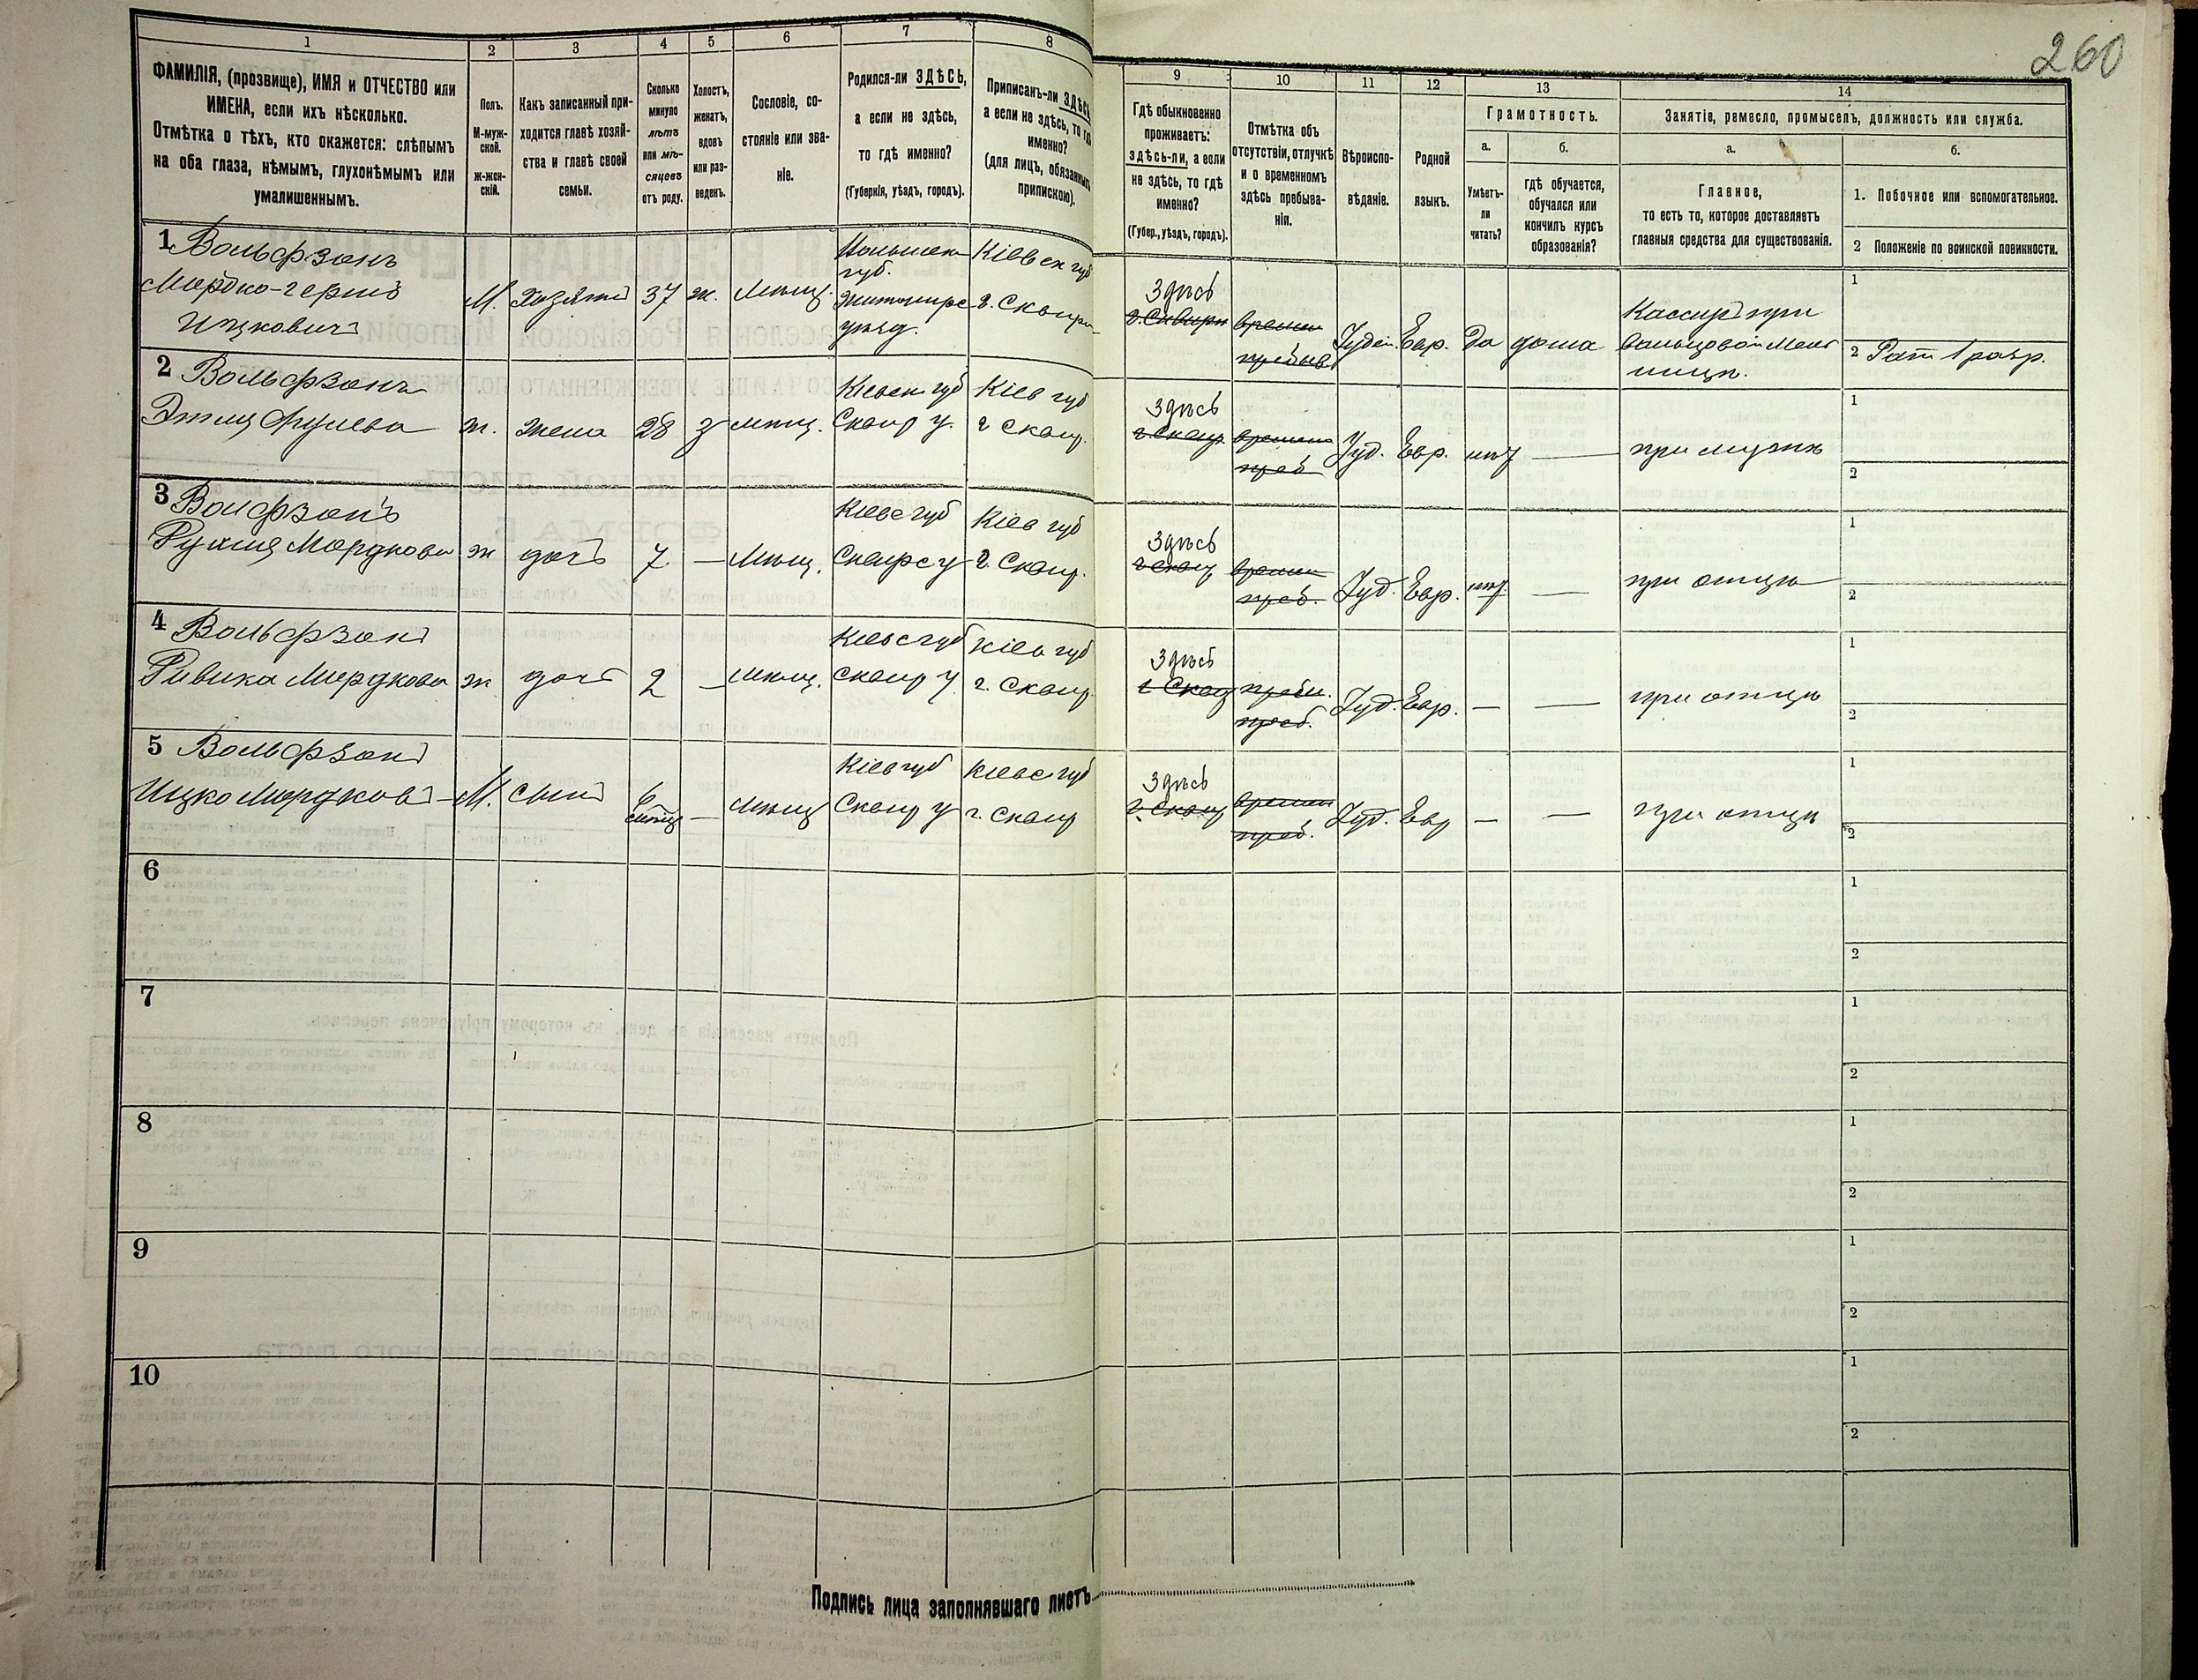 260
1
2
3
4
5
6
7
8
9
10
11
12
13
14
ФАМИЛІЯ, (прозвище), ИМЯ и ОТЧЕСТВО или
ИМЕНА, если ихъ нѣсколько.
Отмѣтка о тѣхъ, кто окажется: слѣпымъ
на оба глаза, нѣмымъ, глухонѣмымъ или
умалишеннымъ.
Полъ.
М-муж-
ской.
ж-жен-
скій.
Какъ записанный при-
ходится главѣ хозяй-
ства и главѣ своей
семьи.
Сколько
минуло
лѣтъ
или мѣ-
сяцевъ
отъ роду.
Холостъ,
женатъ,
вдовъ
или раз-
веденъ.
Сословіе, со-
стояніе или зва-
ніе.
Родился-ли ЗДѢСЬ,
а если не здѣсь,
то гдѣ именно?
(Губернія, уѣздъ, городъ).
Приписанъ-ли ЗДѢСЬ
а если не здѣсь, то гдѣ
именно?
(для лицъ, обязанныхъ
припискою).
Гдѣ обыкновенно
проживаетъ:
здѣсь-ли, а если
не здѣсь, то гдѣ
именно?
(Губер., уѣздъ, городъ).
Отмѣтка объ
отсутствіи, отлучкѣ
и о временномъ
здѣсь пребыва-
ніи.
Вѣроиспо-
вѣданіе.
Родной
языкъ.
Грамотность.
а.
Умѣетъ-
ли
читать?
б.
гдѣ обучается,
обучался или
кончилъ курсъ
образованія?
Занятіе, ремесло, промыселъ, должность или служба.
а.
Главное,
то есть то, которое доставляетъ
главныя средства для существованія.
б.
1. Побочное или вспомогательное.
2 Положеніе по воинской повинности.
1 Вольфзонъ
Мордко-гершъ
Ицковичъ
М. Хозяинъ 37 ж. Мѣщ.
губ.
Житомирс
уѣзд.
Кіевск губ
г. Сквир
Здѣсь
г. Сквирѣ
времен
пребыв
Іудей. Евр. Да дома
Кассиръ при
вальцовой мель
ницѣ.
1
2 Рат 1 разр.
2 Вольфзонъ
ж. жена 28 з мѣщ.
Кіевск губ
Сквир у.
Кіев губ
г Сквир.
Здѣсь
г. Сквир
времен
преб
Іуд. Евр. нѣт —
при мужѣ
1
2
3 Волфзонъ
Рухля Мордкова ж дочь 7 — Мѣщ.
Кіевс губ
Сквирс у
Кіев губ
г. Сквир.
Здѣсь
г Сквир
времен
преб.
Іуд. Евр. нѣт. —
при отцѣ
1
2
4 Вольфзонъ
Ривика Мордкова ж дочь 2 — мѣщ.
Кіевс губ
Сквир у
Кіев губ
г. Сквир.
Здѣсь
г Сквир
преб.
Іуд. Евр. — —
при отцѣ
1
2
5 Вольфзонъ
Ицко Мордковъ М. Сынъ 6 — Мѣщ
Кіев губ
Сквир у
Кіевс губ
г. Сквир
Здѣсь
г. Сквир
времен
преб.
Іуд. Евр — —
при отцѣ
1
2
6
1
2
7
1
2
8
1
2
9
1
2
10
1
2
Подпись лица заполнявшаго листъ